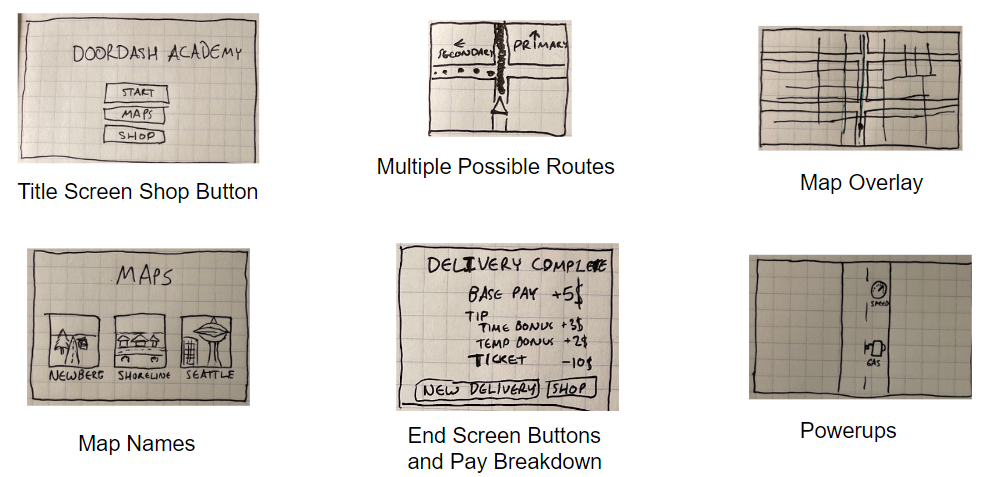 DOORDASH ACADEMY
START
MAPS
SHOP
Title Screen Shop Button
← SECONDARY
↑ PRIMARY
Multiple Possible Routes
Map Overlay
MAPS
NEWBERG SHORELINE SEATTLE
Map Names
DELIVERY COMPLETE
BASE PAY +5$
TIP
TIME BONUS +3$
TEMP BONUS +2$
TICKET -10$
NEW DELIVERY SHOP
End Screen Buttons
and Pay Breakdown
SPEED
GAS
Powerups